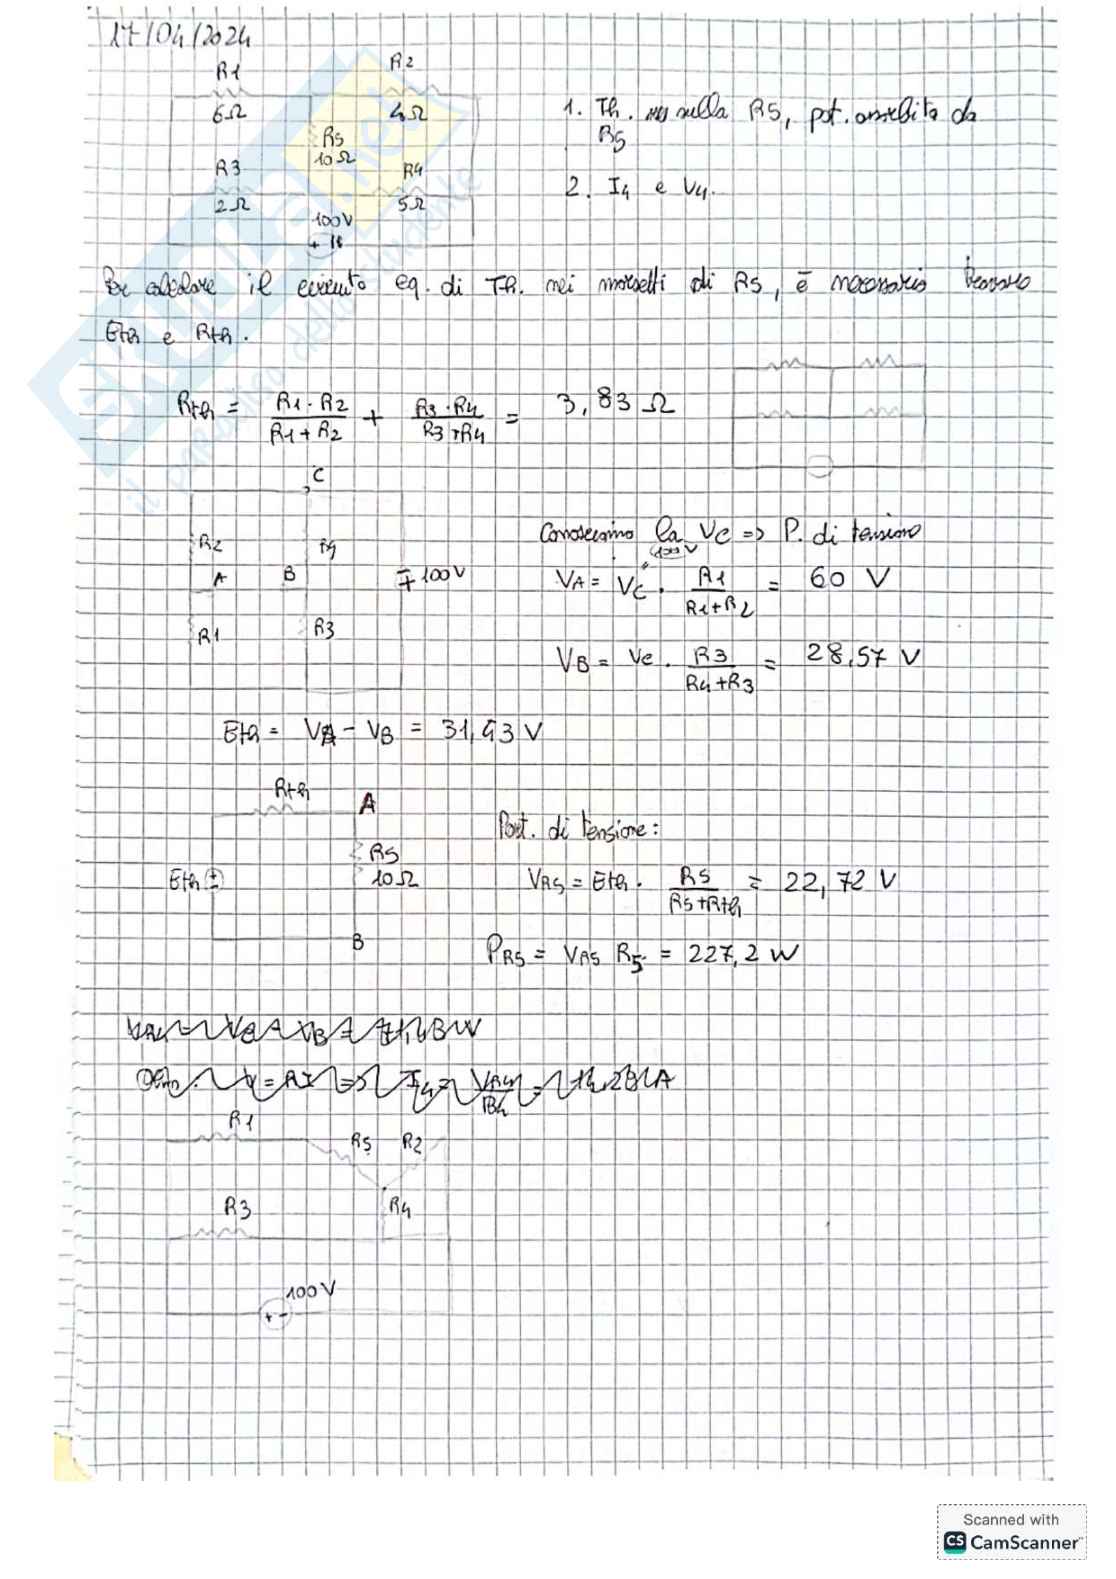 17/04/2024
R1 R2
6Ω 4Ω
R5
10Ω
R3 R4
2Ω 5Ω
100V
+
1. Th. sulla R5, pot. assorbita da
R5
2. I4 e V4.
Per calcolare il circuito eq. di Th. nei morsetti di R5, è necessario trovare
Eth e Rth.
Rth = R1 · R2 / R1 + R2 + R3 · R4 / R3 + R4 = 3,83 Ω
C
R2 R4
A B
∓ 100V
R1 R3
Conosciamo la Vc => P. di tensione
100V
VA = Vc · R1 / R1+R2 = 60 V
VB = Vc · R3 / R4+R3 = 28,57 V
Eth = VA - VB = 31,43 V
Rth A
R5
10Ω
Eth ±
B
Part. di tensione:
VR5 = Eth · R5 / R5+Rth = 22,72 V
PR5 = VR5 R5 = 227,2 W
R1
R5 R2
R3 R4
100V
+ -
skuola.net
il paradiso dello studente
Scanned with
CS CamScanner